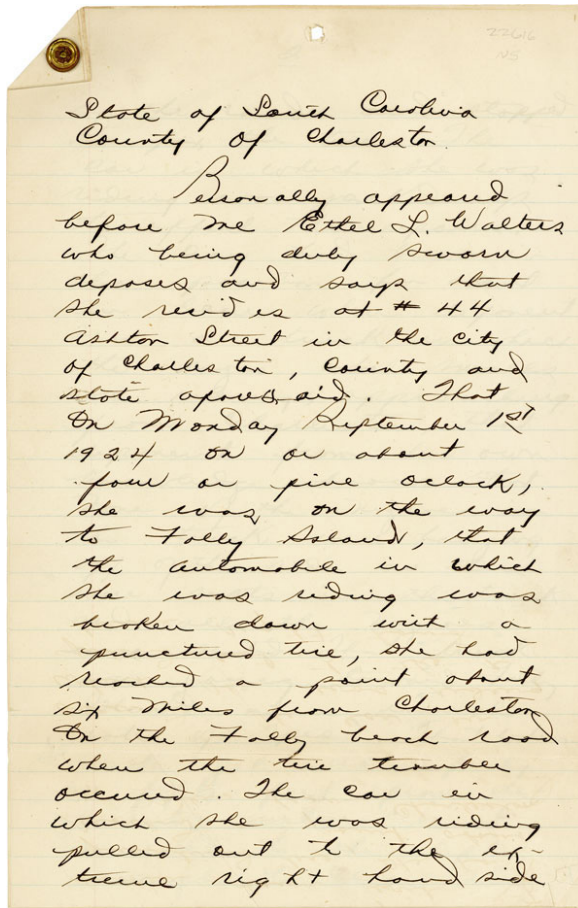 22616
NS
State of South Carolina
County of Charleston.
Personally appeared
before me Ethel L. Walters
who being duly sworn
deposes and says that
she resides at # 44
Ashton Street in the city
of Charleston, County and
state aforesaid. That
On Monday September 1st
1924 on or about
four or five oclock,
she was on the way
to Folly Island, that
the automobile in which
she was riding was
broken down with a
punctured tire, she had
reached a point about
six miles from Charleston
On the Folly beach road
when the tire trouble
occured. The car in
which she was riding
pulled out to the ex-
treme right hand side